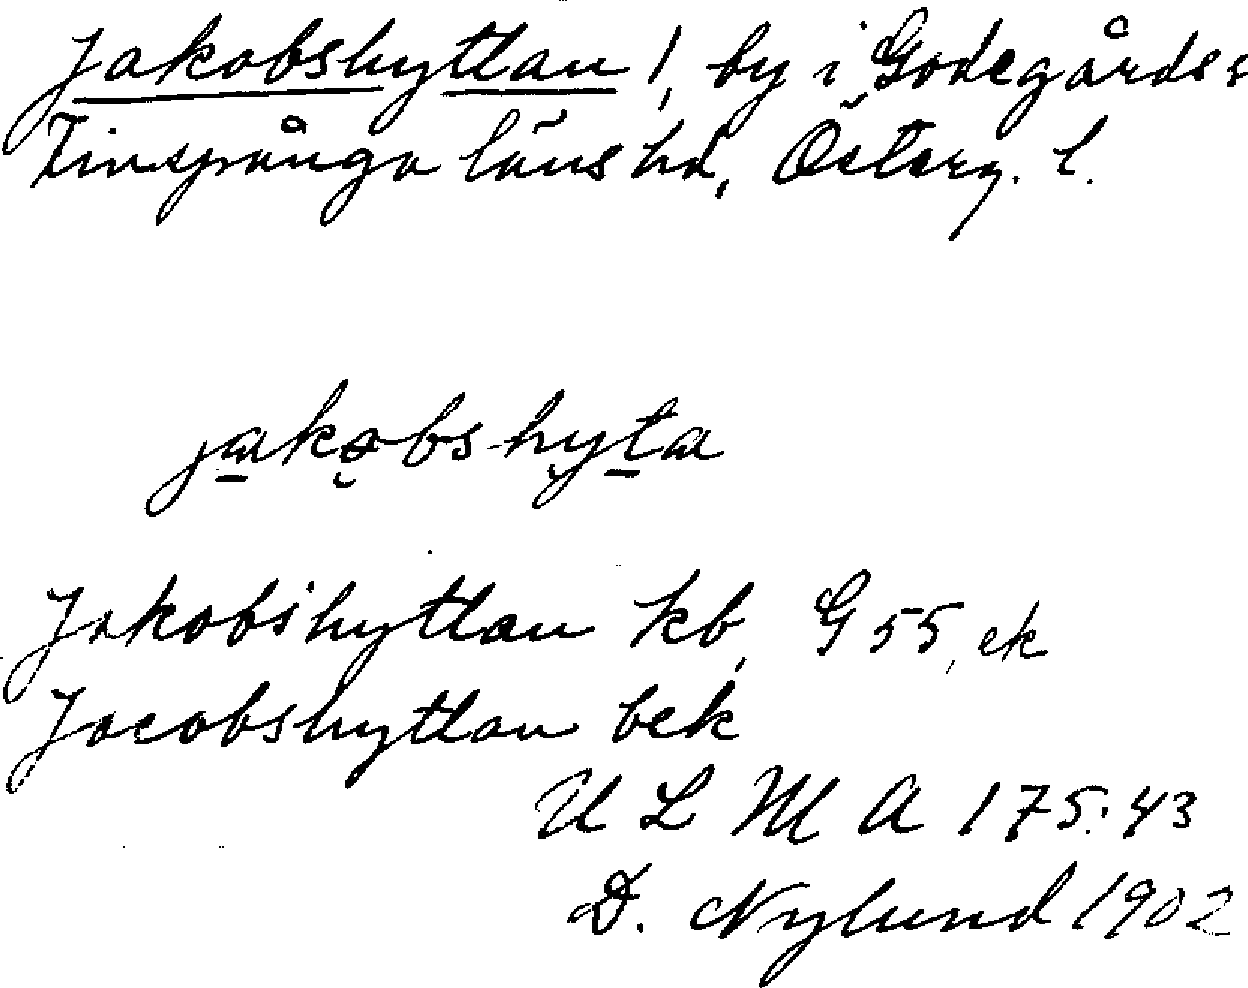 Jakobshyttan 1, by i Godegårds s
Finspånga läns hd, Österg. l.
jakobs-hyta
Jakobshyttan kb, G 55, ek
Jacobshyttan bek
U L M A 175:43
D. Nylund 1902